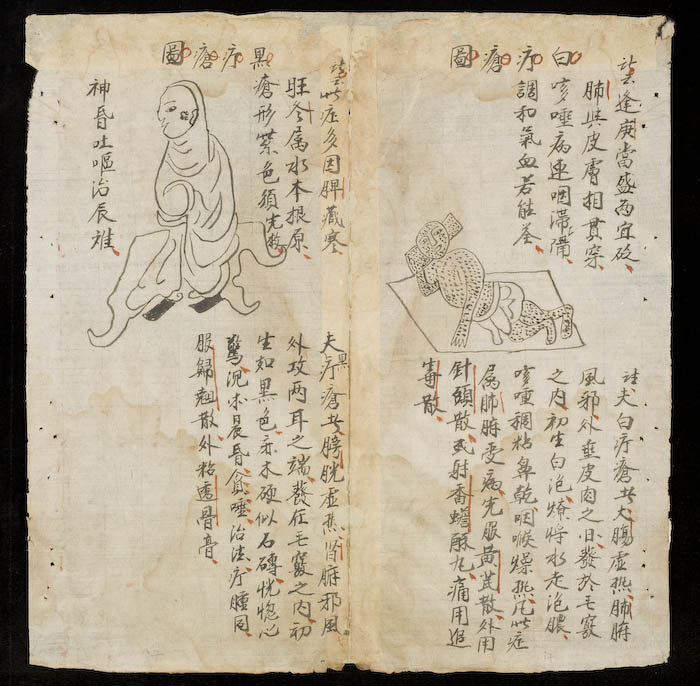 白疔瘡圖
逢庚當盛西宜砭
肺與皮膚相貫穿
咳唾病速咽滯膈
調和氣血若能荃
註夫白疔瘡者大腸虛熱肺腑
風邪外垂皮肉之日發於毛竅
之內初生白泡燎將水走泡膿
咳唾稠粘鼻乾咽喉燥熱凡此症
屬肺腑受病先服黃芪散外用
針頭散或射香蟾酥丸痛用追
毒散
黑疔瘡圖
此症多因脾藏寒
旺冬屬水本根原
瘡形紫色須先救
神昏吐嘔治辰難
夫黑疔瘡者膀胱虛熱腎腑邪風
外攻兩耳之端發在毛竅之內初
生如黑色赤木硬似石磚恍惚心
驚況晨昏貪唾治法疔腫同
服歸翹散外粘透骨膏